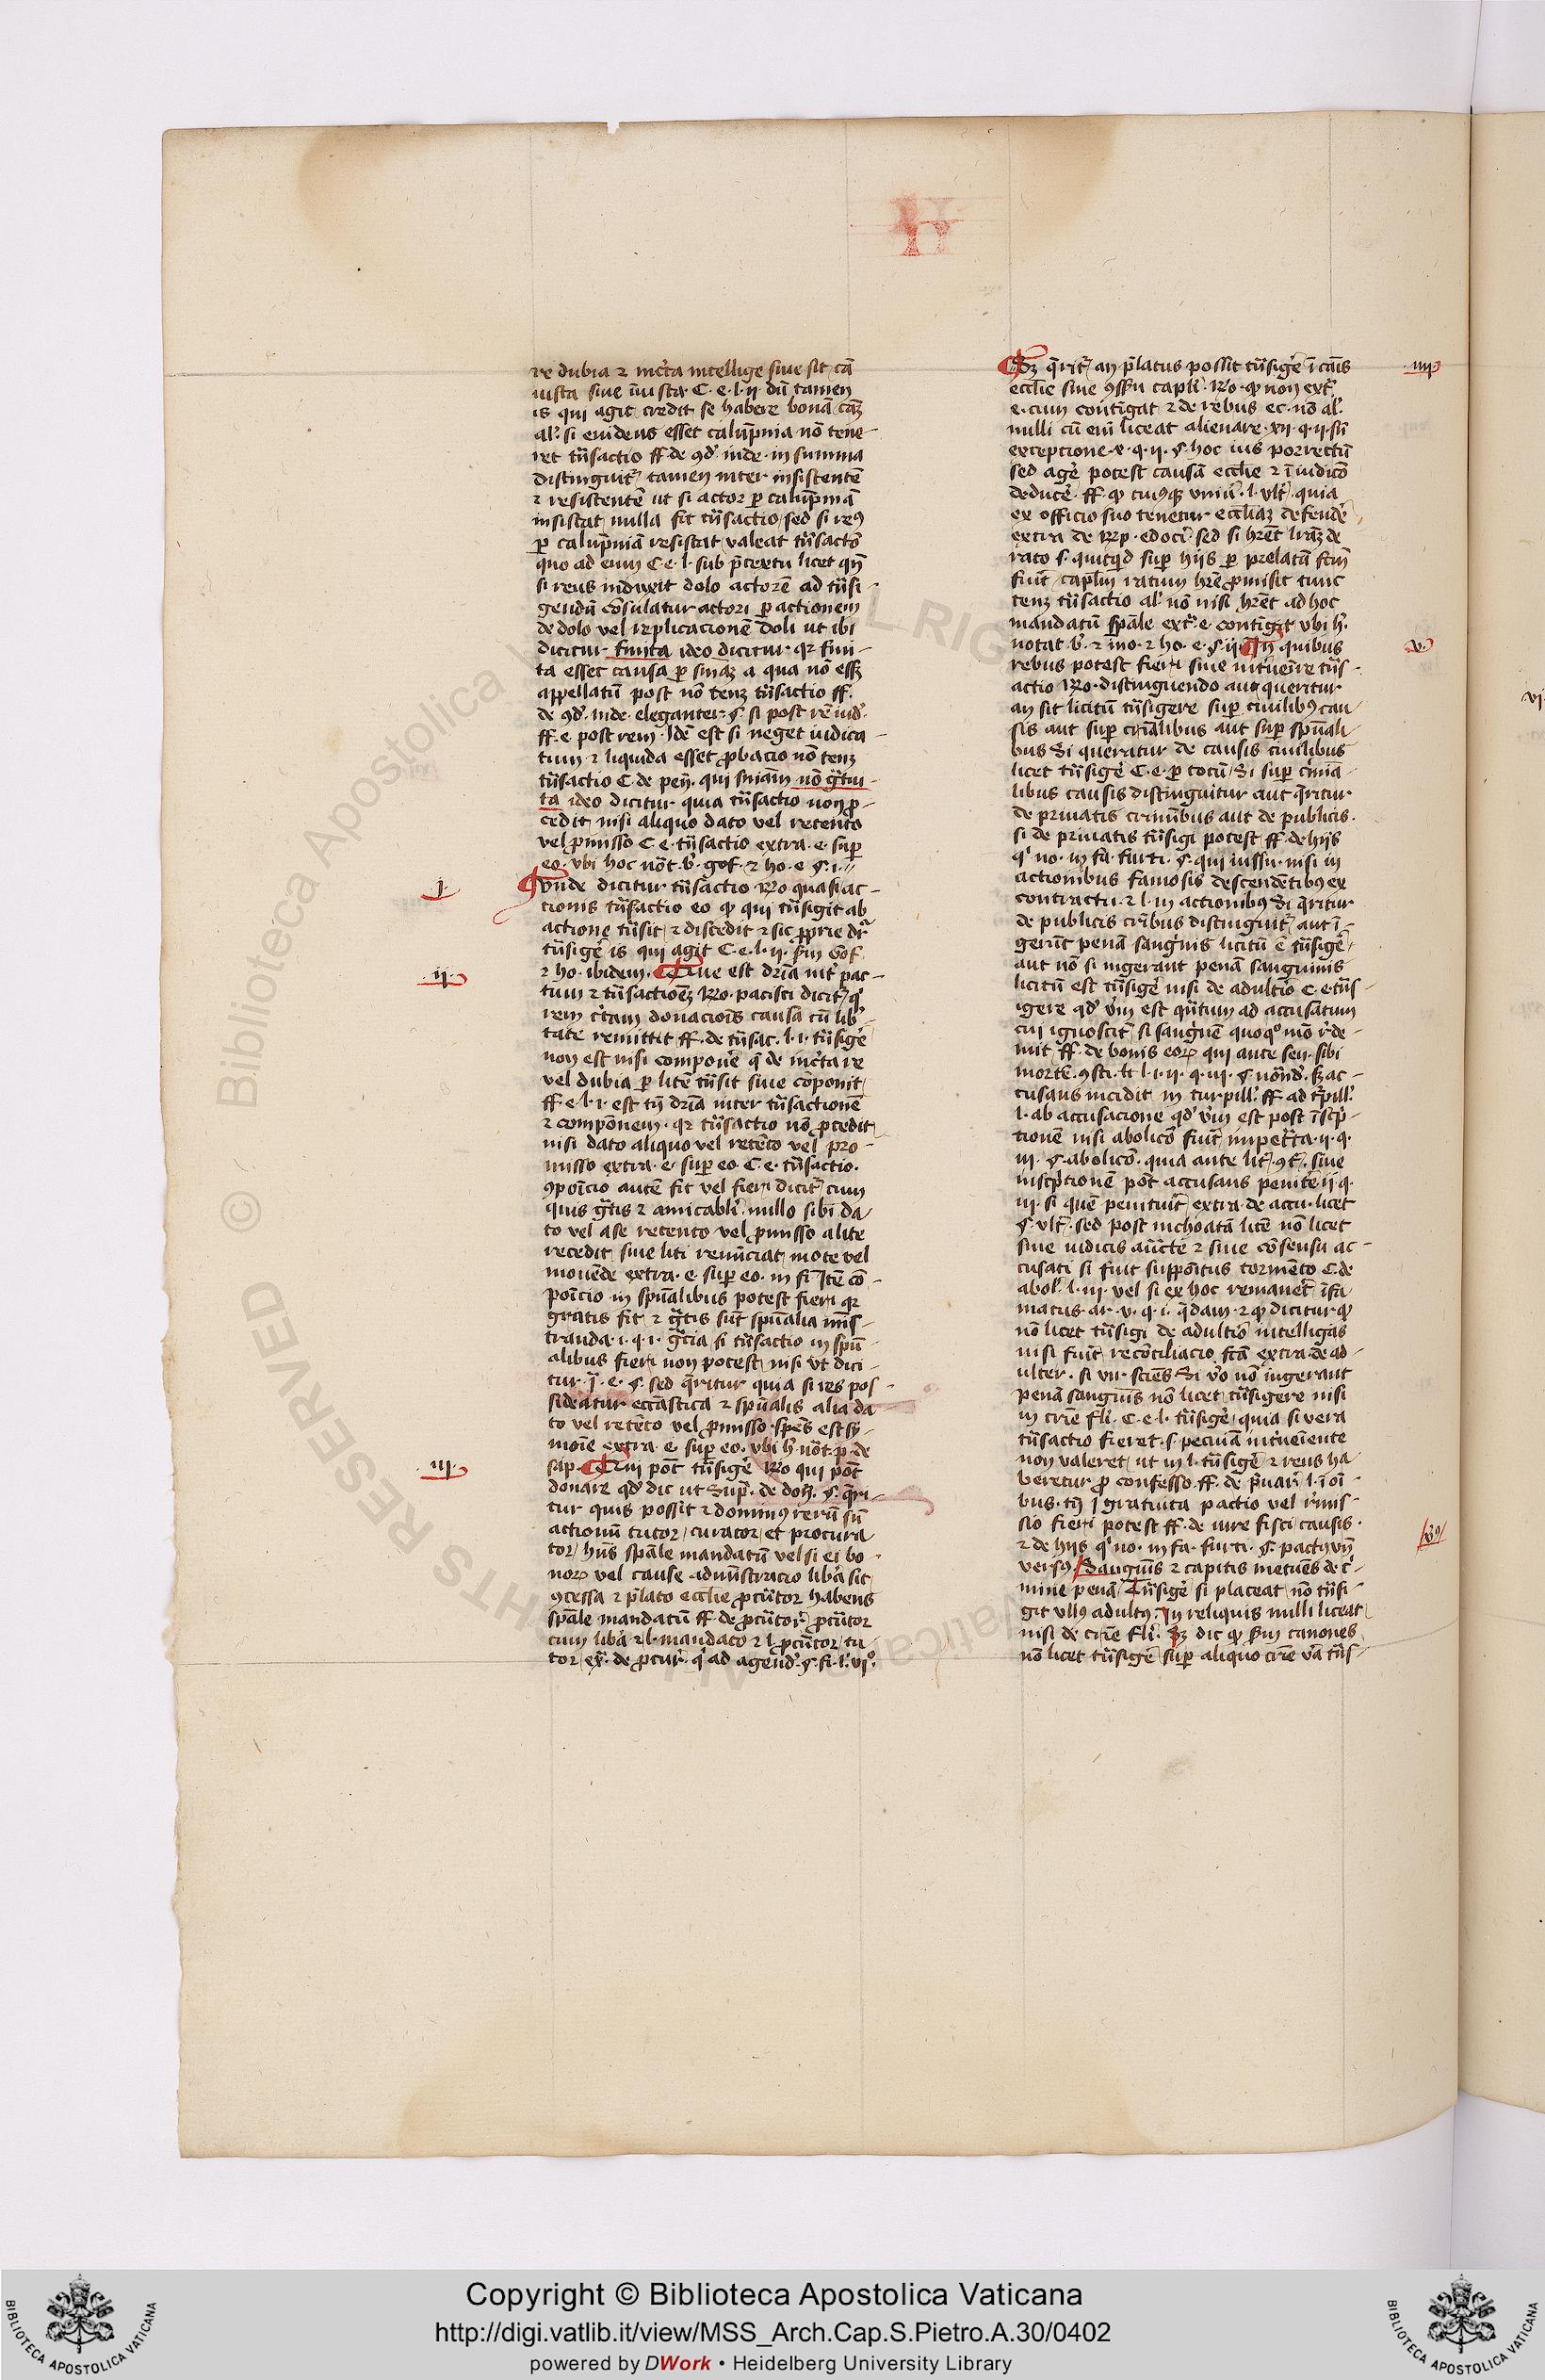 II
re dubia ⁊ incͥta intellige siue sit cā
iusta siue iīusta C. e. l. ii dū tamen
is qui agit credit se habere bonā cāꝫ
alʼ. si euidens esset calūpnia nō tene-
ret tn̄sactio ff de ꝯdʼ. inde. in summa
distinguitʼ tamen inter insistentē
⁊ resistentē ut si actor ꝑ calūpniā
insistat nulla fit tn̄sactio sed si reꝰ
ꝑ calūpniā resistat valeat tn̄sactō
quo ad eum C. e. l. sub p̄textu licet qn̄
si reus induxit dolo actorē ad tn̄si-
gendū cōsulatur actori ꝑ actionem
de dolo vel replicacionē doli ut ibi
dicitur finita ideo dicitur. qꝛ fini-
ta esset causa ꝑ sniaꝫ a qua nō essꝫ
appellatū post nō tenꝫ tn̄sactio ff.
de ꝯdʼ. inde. eleganter. §. si post rē iudʼ.
ff. e post rem. Idē est si neget iudica-
tum ⁊ liquida esset ꝓbacio nō tenꝫ
tn̄sactio C. de pen̄. qui sniam nō gͣtui-
ta ideo dicitur quia tn̄sactio non ꝓ-
cedit nisi aliquo dato vel retento
vel ꝓmisso C e. tn̄sactio extra. e. suꝑ
eo. vbi hoc nōt. bʼ. gof. ⁊ ho. e §. i.
j.
Vnde dicitur tn̄sactio Ro quasi ac-
tionis tn̄sactio eo ꝙ qui tn̄sigit ab
actione tn̄sit ⁊ discedit ⁊ sic ꝓprie dr̄
tn̄sigeͥ is qui agit C. e. l. ii. sm̄ Gof.
ii.
⁊ ho. ibidem. Que est dr̄ia intʼ pac-
tum ⁊ tn̄sactionēꝫ Ro. pacisci dicitʼ qͥ
rem cͥtam donacōis causa cū libʼ-
tate remittit ff. de tn̄sac. l. i. tn̄sigeͥ
non est nisi componeͥ qͣ de incͥta re
vel dubia ꝑ litē tn̄sit siue cōponit
ff. e. l. i. est tn̄ dr̄ia inter tn̄sactionē
⁊ compōnem. qꝛ tn̄sactio nō ꝓcedit
nisi dato aliquo vel retēto vel pro-
misso extra. e. suꝑ eo. C. e. tn̄sactio.
ꝯpoīcio autē fit vel fieri dicitʼ cum
quis gͣtis ⁊ amicablʼr nullo sibi da-
to vel a se retento vel ꝓmisso a lite
recedit siue liti renūciat mote vel
mouēde extra. e. suꝑ eo. in fi Itē cō-
poīcio in spūalibus potest fieri qꝛ
gratis fit ⁊ gͣtis sūt spūalia mīs-
tranda. i. q. i. gͣcia si tn̄sactio in spū-
alibus fieri non potest nisi vt dici-
tur j̄. e. §. sed q̄ritur quia si res pos-
sideatur ecclāstica ⁊ spūalis alia da-
to vel retēto vel ꝓmisso. spēs est sy-
monīe extra. e. suꝑ eo. vbi hʼ nōt. p. de
iii.
sap. Qui pōt tn̄sigeͥ Ro qui pōt
donare qdʼ dic ut supͣ. de doͣ. §. q̄ri-
tur quis possit ⁊ dominꝰ rerū sūt
actionū tutor / curator / et procura-
tor / hn̄s spāle mandatū vel si ei bo-
norꝫ vel cause adminīstracio libͥa sit
ꝯcessa ⁊ p̄lato ecclīe ꝓcūtor habens
spāle mandatū ff. de ꝓcūtorʼ ꝓcūtor
cum libͥa ⁊ l. mandato ⁊ l ꝓcūtor / tu-
tor / exͣ. de ꝓcurʼ. qͥ ad agendʼ. §. fi. lʼ. viͦ.
iiii
Sꝫ q̄ritʼ an p̄latus possit tn̄sigeͥ ī cāis
ecclīe siue ꝯsēsu caplʼi Ro. ꝙ non extʼ
e. cum contīgat ⁊ de rebus ec. nō alʼ.
nulli cū eni liceat alienare. xii. q. ii. sn̄
excepcione. x. q. ii. §. hoc ius porrectū
sed ageͥ potest causā ecclīe ⁊ ī iudicō
deduceͥ. ff. ꝙ cuiꝰqꝫ vniūʼ. l. vltʼ. quia
ex officio suo tenetur ecclīaꝫ defendeͥ
extra de Rʼp. edocī. sed si hr̄et lrāꝫ de
rato s. quicqd suꝑ hijs ꝑ prelatū fcm̄
fuitʼ caplʼm ratum hr̄e ꝓmisit tunc
tenꝫ tn̄sactio alʼ nō nisi hr̄et ad hoc
mandatū spāle extʼ. e. contīgit vbi hʼ.
v.
notat bʼ. ⁊ īno. ⁊ ho. e. §. ii. In quibus
rebus potest fieri siue interuenire tn̄s-
actio Ro. distinguendo aut queritur
an sit licitū tn̄sigere suꝑ ciuilibꝰ cau-
sis aut suꝑ crīalibus aut suꝑ spūali-
bus Si queratur de causis ciuilibus
licet tn̄sigeͥ C. e. ꝑ totū / Si suꝑ crimīa-
libus causis distinguitur aut q̄ritur.
de priuatis criminībus aut de publicis.
si de priuatis tn̄sigi potest ff. de hijs
qͥ no. in fa. furti. §. qui iussu. nisi in
actionibus famosis descendētibꝰ ex
contractu. ⁊ l. in actionibꝰ Si q̄ritur
de publicis crībus distinguitʼ aut ī-
gerūt penā sanguis licitū ē tn̄sigeͥ
aut nō si ingerant penā sanguinis
licitū est tn̄sigeͥ nisi de adultiō C. e. tn̄s-
igere qdʼ vʼm est qn̄tum ad accusatum
cui ignoscitʼ si sanguīē quoqͦ mō rʼde-
mit ff. de bonis eorꝫ qui ante sen̄. sibi
mortē. ꝯsci. lʼt l. i. ii. q. iii. §. nōndʼ. sꝫ ac-
cusans incidit in turpillʼ. ff. ad tʼpillʼ.
l. ab accusacione qdʼ vʼm est post īscͥp-
tionē nisi abolicō fuitʼ impetrāta. ii. q.
iii. §. abolicō. quia ante litʼ. ꝯtʼ. siue
inscͥptionē pōt accusans penitēʼ ii q.
iii. si quē penituitʼ extra. de accu. licet
§. vltʼ. sed post inchoatā litē nō licet
sine iudicis auctē ⁊ sine cōsensu ac-
cusati si fuit suppoītus tormēto C. de
abolʼ. l. iii. vel si ex hoc remanetʼ īfa-
matus. ar. v. q. i. q̄dam. ⁊ ꝙ dicitur ꝙ
nō licet tn̄sigi de adultiō intelligas
nisi fuitʼ recōciliacio fcā extra de ad-
ulter. si vir sciēs Si vʼo nō ingerant
penā sanguis nō licet tn̄sigere nisi
in crīe flʼi. C. e. l. tn̄sigeͥ / quia si vera
tn̄sactio fieret. s. pecuīā interueniente
non valeret ut in l. tn̄sigeͥ ⁊ reus ha-
beretur ꝓ confesso. ff. de p̄uarʼ l. ī oī-
bus. tn̄ gratuita pactio vel rʼmis-
sio fieri potest ff. de iure fisci causis.
vʼꝰ
⁊ de hijs qͥ no. in fa. furti. §. pactꝰ vn̄
versꝰ. Sanguīs ⁊ capitis metuēs de cͥ-
mine penā / Tn̄sigeͥ si placeat nō tn̄si-
git vllꝰ adultꝰ. In reliquis nulli liceat
nisi de crīe flʼi. Sꝫ dic ꝙ sm̄ canones
nō licet tn̄sigeͥ suꝑ aliquo crīe vā tn̄s-
vi
Copyright © Biblioteca Apostolica Vaticana
http://digi.vatlib.it/view/MSS_Arch.Cap.S.Pietro.A.30/0402
powered by DWork • Heidelberg University Library
BIBLIOTECA APOSTOLICA VATICANA
BIBLIOTECA APOSTOLICA VATICANA